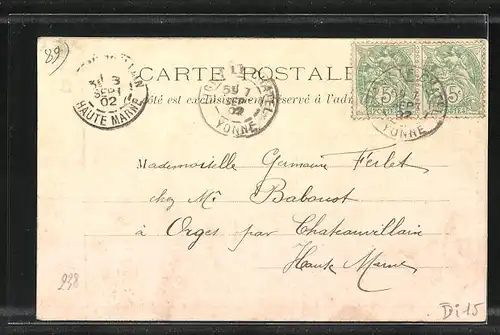 89
CARTE POSTALE
Côté est exclusivement réservé à l'adr
HAUTE MARNE
SEPT
02
YONNE
SEPT
02
5c 5c
SEPT
02
YONNE
Mademoiselle Germaine Ferlet
chez Mr Babouot
à Orges par Chateauvillain
Haute Marne
938
Di 15